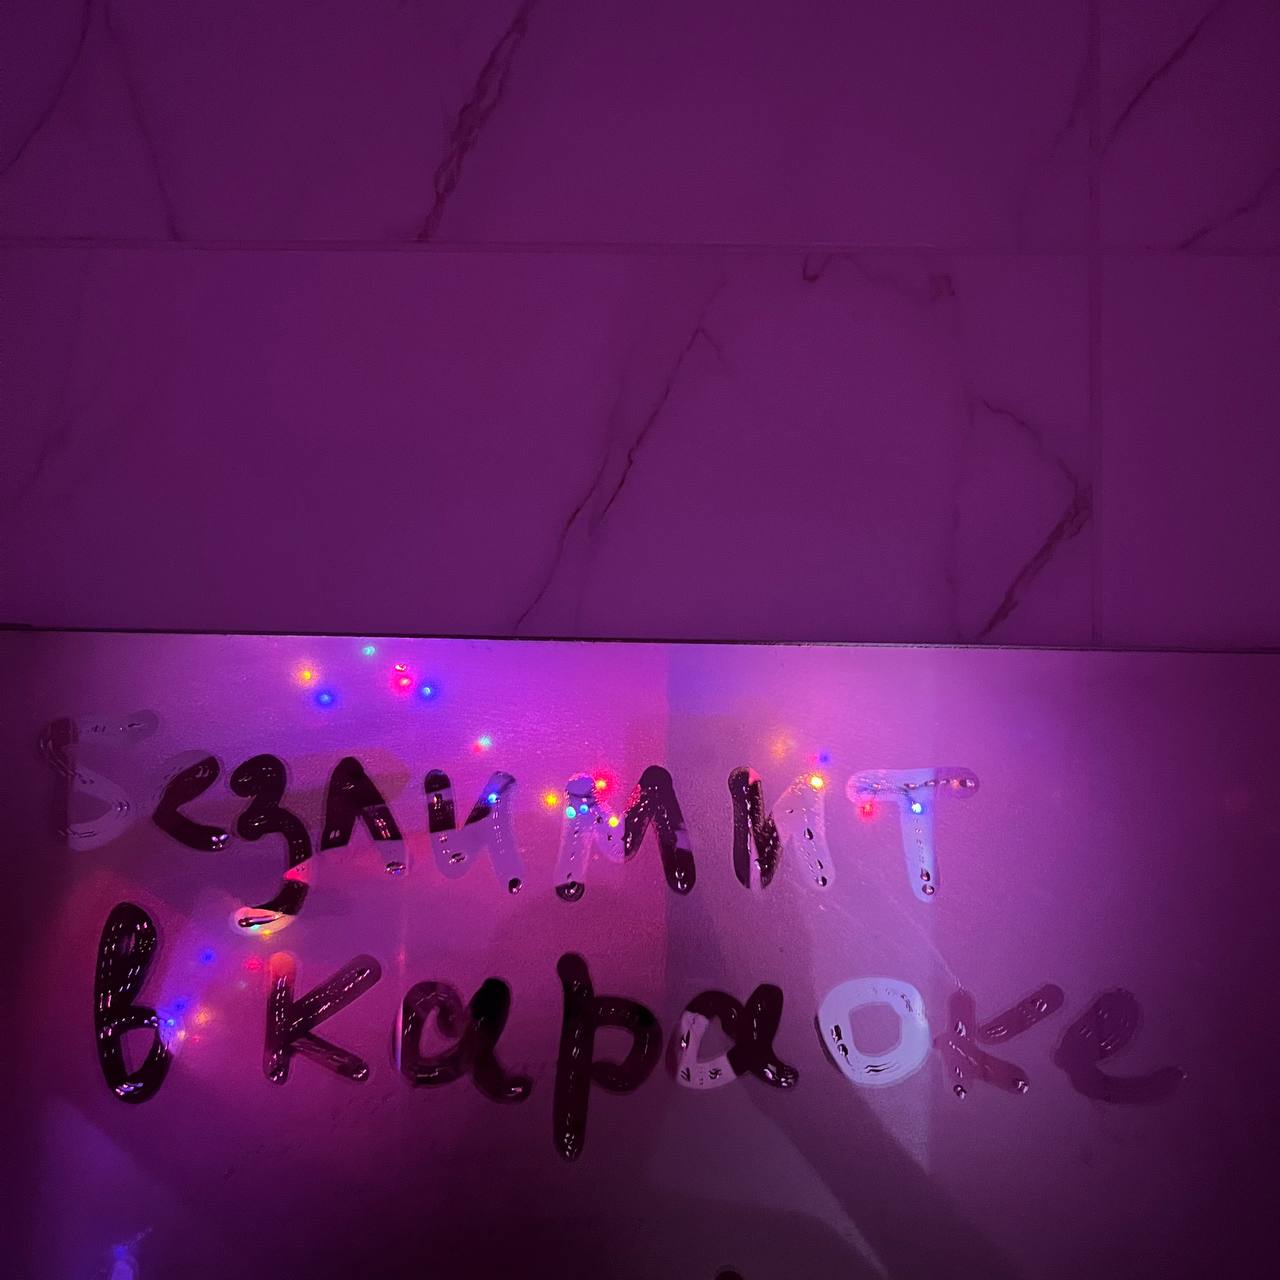 Безлимит
в караоке